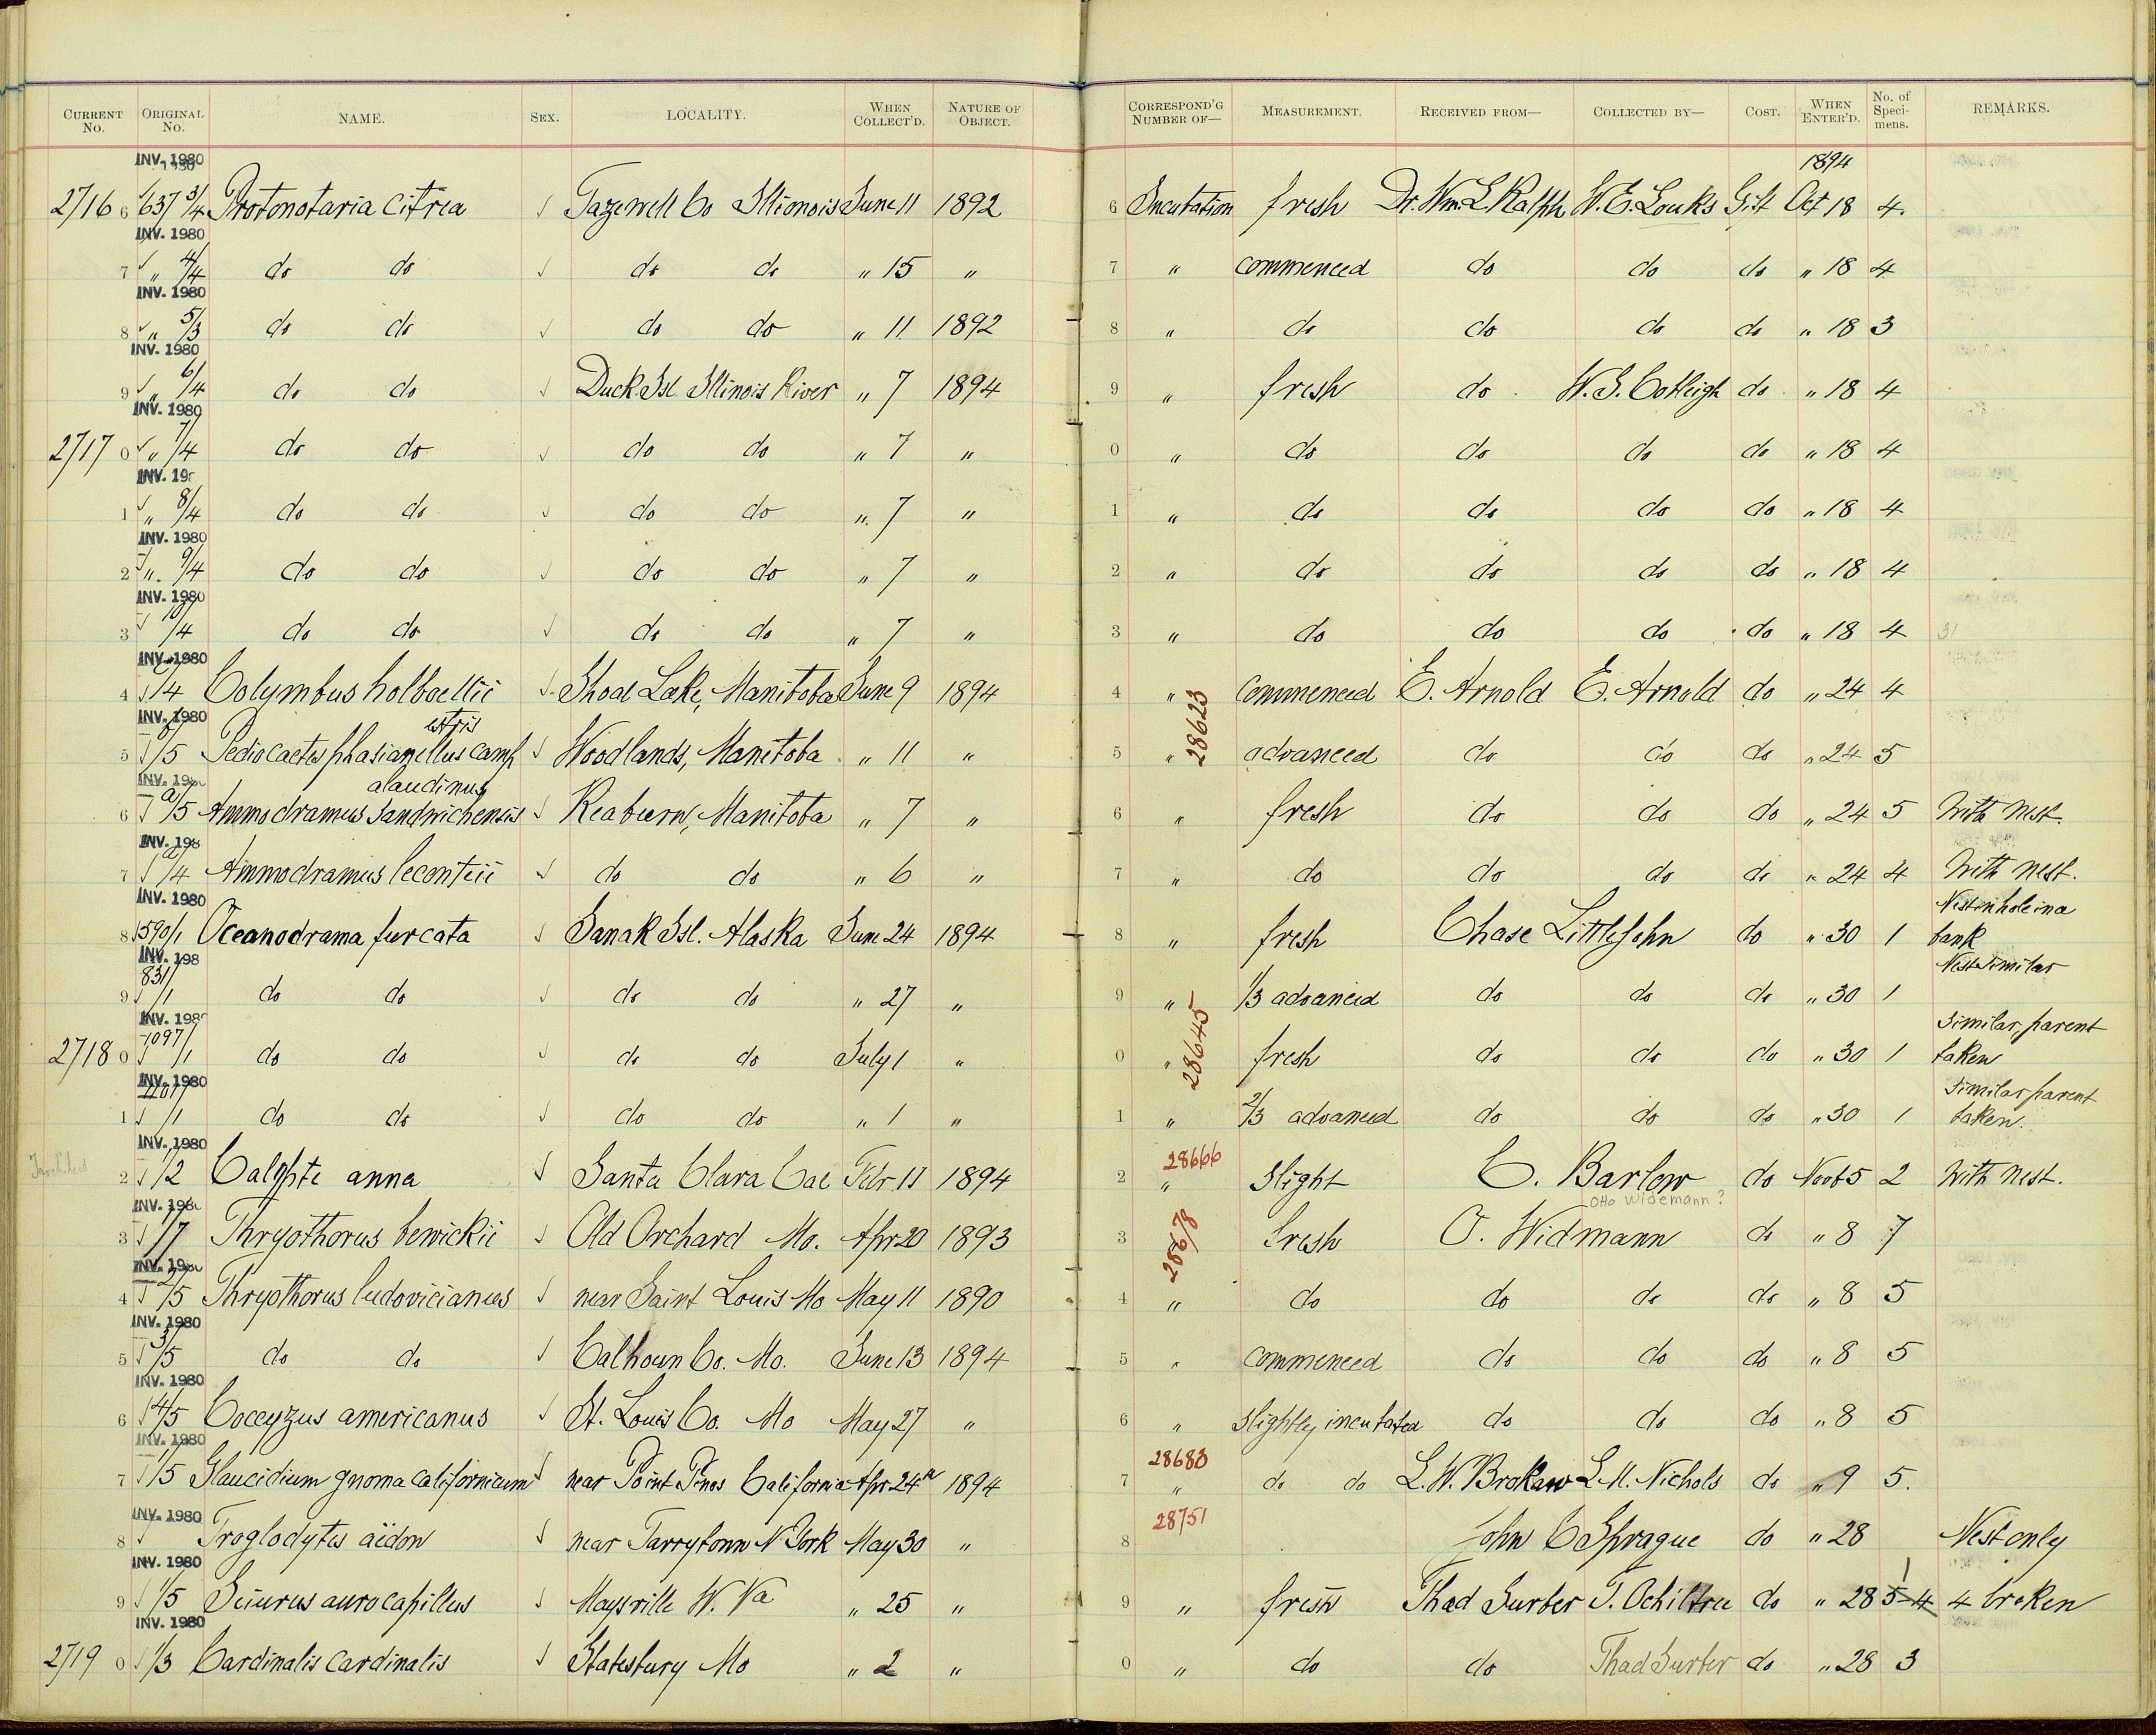 CURRENT No. ORIGINAL No. NAME. SEX. LOCALITY. WHEN COLLECT'D. NATURE OF OBJECT. CORRESPOND'G NUMBER OF— MEASUREMENT. RECEIVED FROM— COLLECTED BY— COST. WHEN ENTER'D. No. of Specimens. REMARKS.
INV. 1980 1894
2716 6 637 3/4 Protonotaria citrea Tazewell Co Illionois June 11 1892 6 Incubation fresh Dr. Wm. L Ralph W. E. Louks Gift Oct 18 4.
INV. 1980
7 " 4/4 do do do do " 15 " 7 " commenced do do do " 18 4
INV. 1980
8 " 5/3 do do do do " 11 1892 8 " do do do do " 18 3
INV. 1980
9 " 6/4 do do Duck Isl. Illinois River " 7 1894 9 " fresh do W. S. Cotleigh do " 18 4
INV. 1980
2717 0 " 7/4 do do do do " 7 " 0 " do do do do " 18 4
INV. 19
1 " 8/4 do do do do " 7 " 1 " do do do do " 18 4
INV. 1980
2 " 9/4 do do do do " 7 " 2 " do do do do " 18 4
INV. 1980
3 10/4 do do do do " 7 " 3 " do do do do " 18 4
INV. 1980
4 /4 Colymbus holboellii Shoal Lake, Manitoba June 9 1894 4 " commenced E. Arnold E. Arnold do " 24 4
INV. 1980 estris 28623
5 /5 Pediocaetes phasianellus camp Woodlands, Manitoba " 11 " 5 " advanced do do do " 24 5
INV. 1980 alaudinus
6 a/5 Ammodramus sandwichensis Reaburn, Manitoba " 7 " 6 " fresh do do do " 24 5 With nest.
INV. 198
7 a/4 Ammodramus leconteii do do " 6 " 7 " do do do do " 24 4 With nest.
INV. 1980 Nest in hole in a
8 590/1 Oceanodrama furcata Sanak Isl. Alaska June 24 1894 8 " fresh Chase Littlejohn do " 30 1 bank
INV. 198 Nest similar
9 831/1 do do do do " 27 " 9 " 1/3 advanced do do do " 30 1
INV. 198 28645 Similar, parent
2718 0 1097/1 do do do do July 1 " 0 " fresh do do do " 30 1 taken
INV. 1980 Similar parent
1 /1 do do do do " 1 " 1 " 2/3 advanced do do do " 30 1 taken.
INV. 1980 28666
2 1/2 Calypte anna Santa Clara Cal Febr. 11 1894 2 " Slight C. Barlow do Novb 5 2 With nest.
INV. 198 Otto Widemann?
3 1/7 Thryothorus bewickii Old Orchard Mo. Apr 20 1893 3 28678 fresh O. Widmann do " 8 7
INV. 1980
4 2/5 Thryothorus ludovicianus near Saint Louis Mo May 11 1890 4 " do do do do " 8 5
INV. 1980
5 3/5 do do Calhoun Co. Mo. June 13 1894 5 " commenced do do do " 8 5
INV. 1980
6 4/5 Coccyzus americanus St. Louis Co. Mo May 27 " 6 " slightly incubated do do do " 8 5
INV. 1980 28683
7 1/5 Glaucidium gnoma californicum near Point Pinos California Apr 24th 1894 7 " do do L. W. Brokaw L. M. Nichols do " 9 5.
INV. 1980 28751
8 Troglodytes aëdon near Tarrytown N York May 30 " 8 John C Sprague do " 28 Nest only
INV. 1980 1
9 1/5 Seiurus aurocapillus Maysville W. Va " 25 " 9 " fresh Thad Surber T. Ochiltree do " 28 5-4 4 broken
INV. 1980
2719 0 1/3 Cardinalis cardinalis Statesbury Mo " 2 " 0 " do do Thad Surber do " 28 3